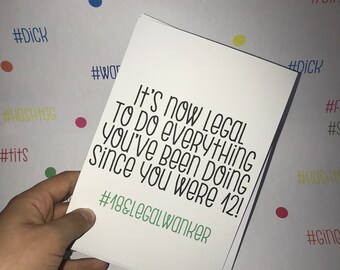 #DICK
#DICK
#HASHTAG
#TITS
IT'S NOW LEGAL
TO DO EVERYTHING
YOU'VE BEEN DOING
SINCE YOU WERE 12!
#18&LEGALWANKER